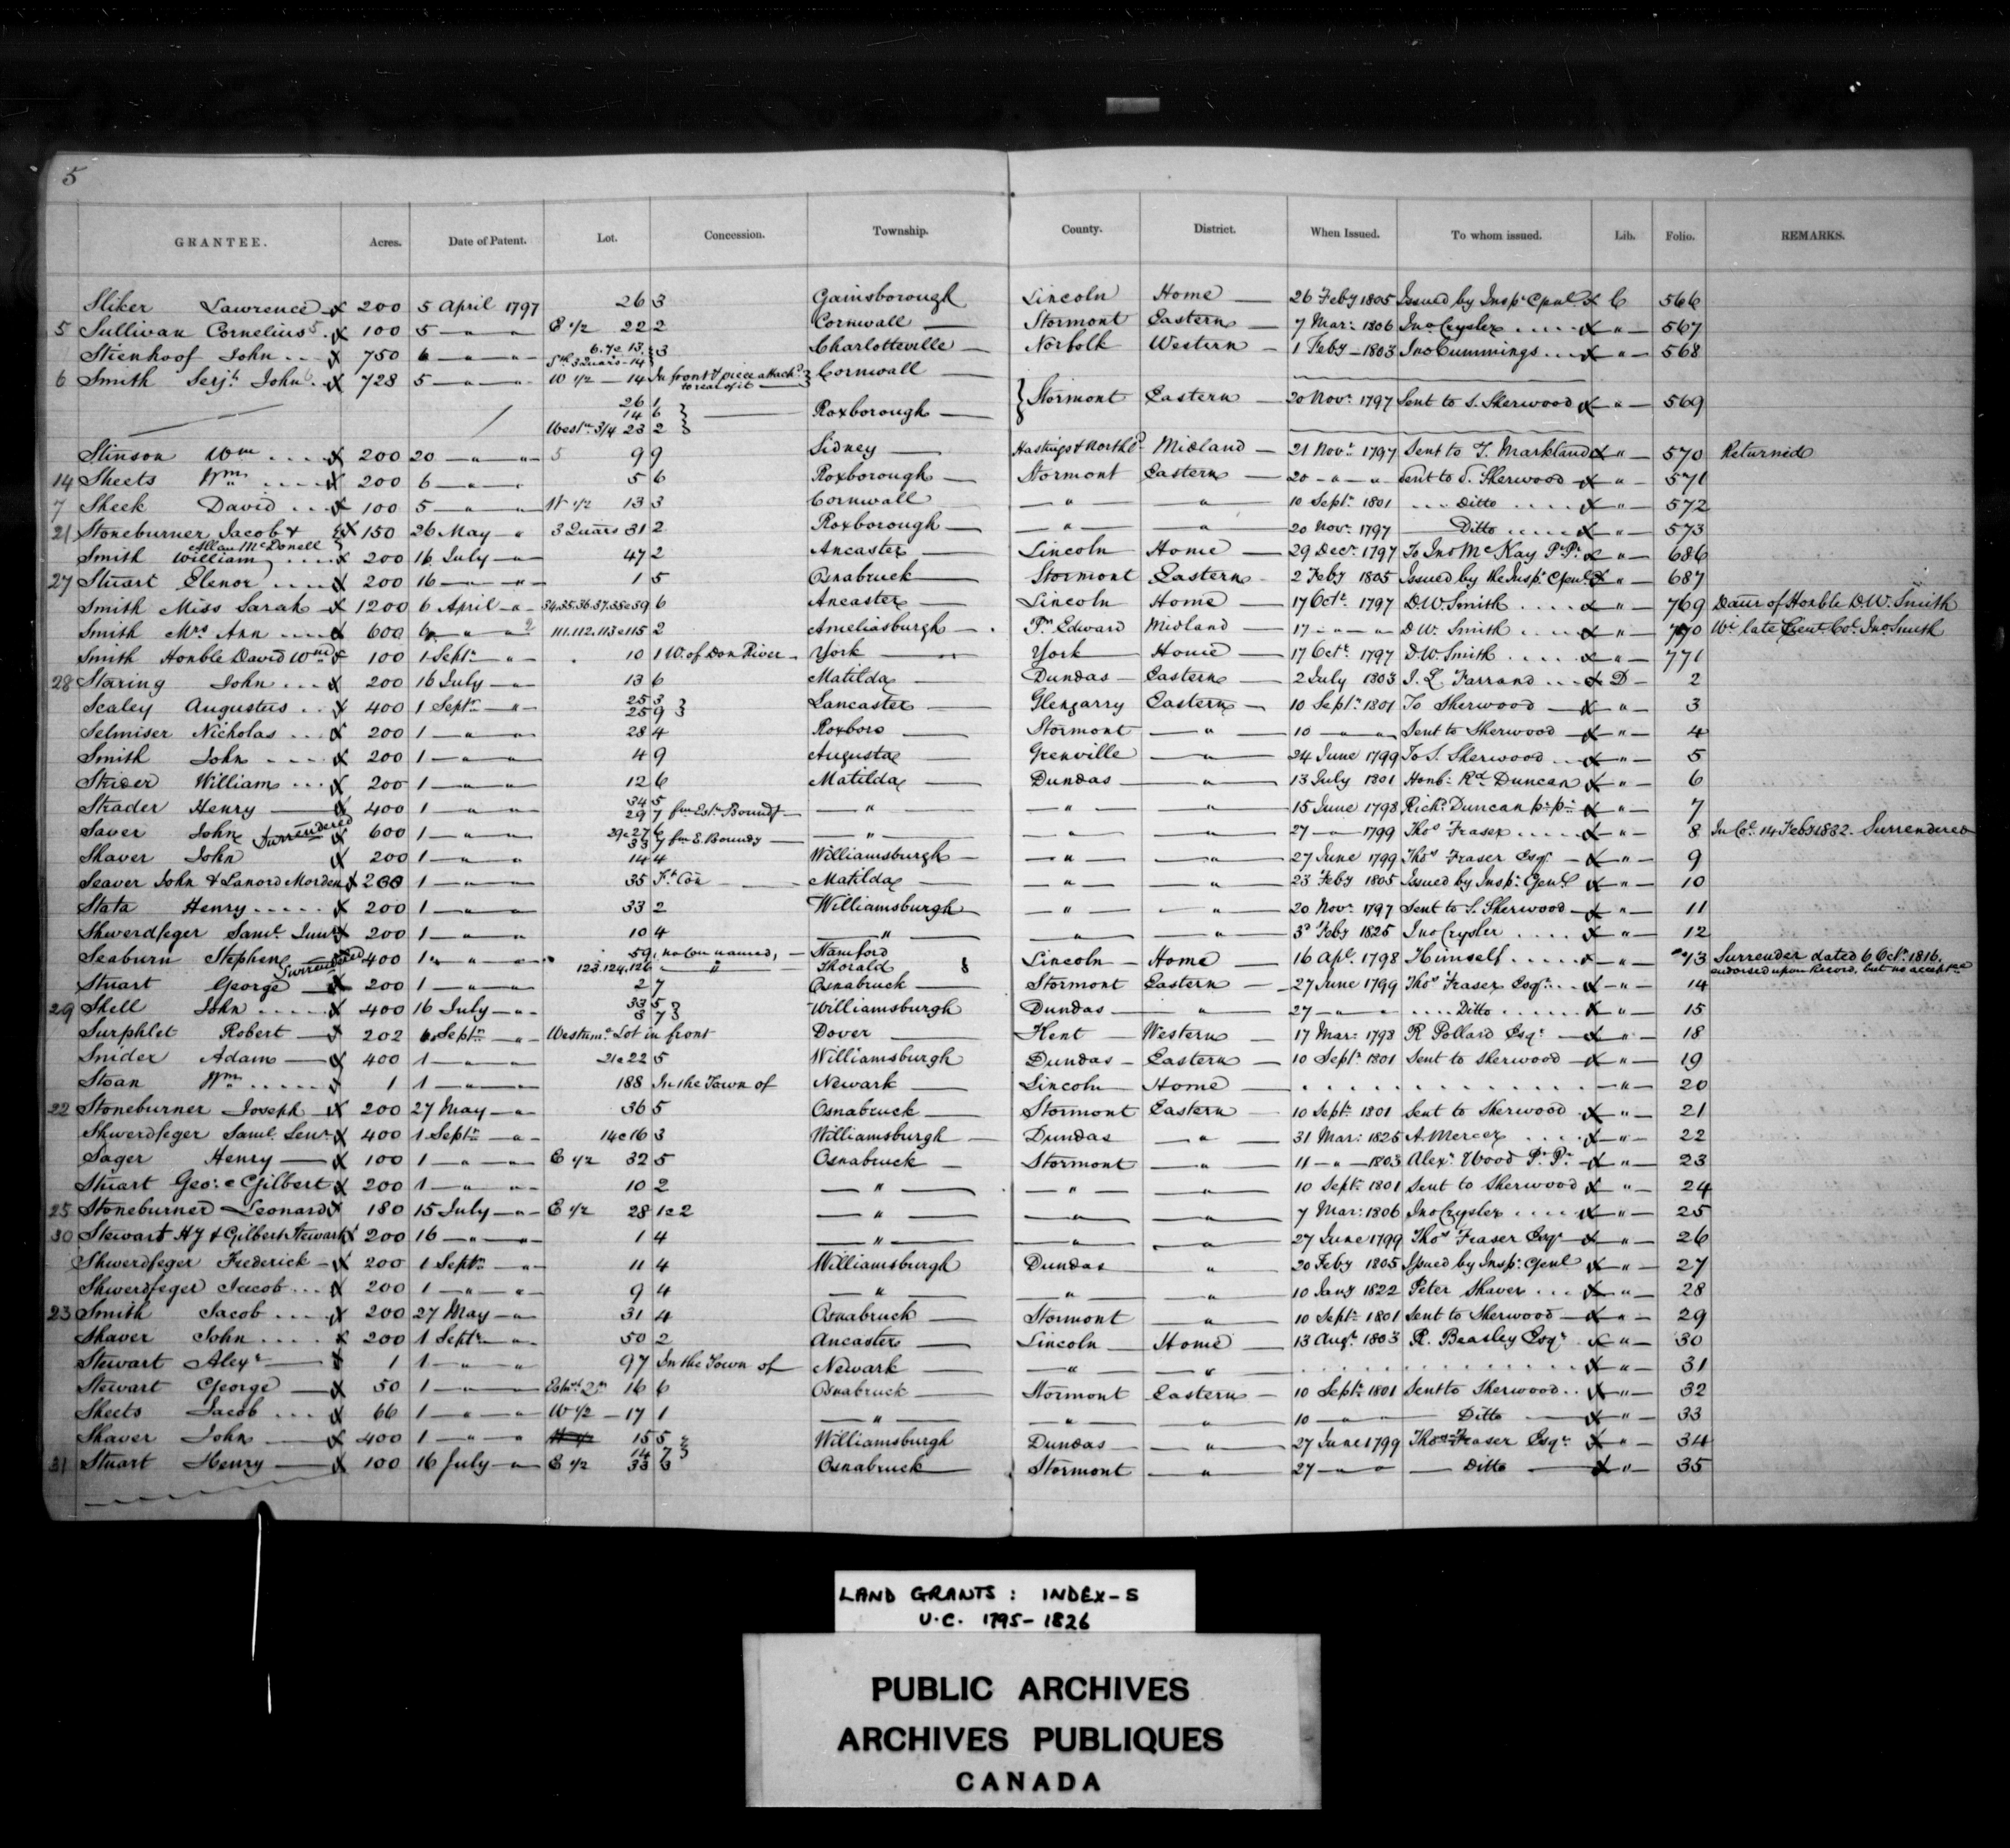 5
GRANTEE. Acres. Date of Patent. Lot. Concession. Township. County. District. When Issued. To whom issued. Lib. Folio. REMARKS.
Sliker Lawrence 200 5 April 1797 26 3 Gainsborough Lincoln Home 26 Feby 1805 Issued by Inspr Genl C 566
5 Sullivan Cornelius 100 5 " " E 1/2 22 2 Cornwall Stormont Eastern 7 Mar: 1806 Jno Crysler " 567
Stienhoof John 750 6 " " 6. 7 & 13. Sth 3 Quars - 14 } 3 Charlotteville Norfolk Western 1 Feby 1803 Jno Cummings " 568
6 Smith Serjt John 728 5 " " W 1/2 14 In front & piece attachd to rear of it } Cornwall
26 1
14 6 } Roxborough } Stormont Eastern 20 Novr 1797 Sent to S. Sherwood " 569
Westn 3/4 23 2
Stinson Wm 200 20 " " 9 9 Sidney Hastings & Northd Midland 21 Novr 1797 Sent to T. Markland " 570 Returned
14 Sheets Wm 200 6 " " 5 6 Roxborough Stormont Eastern 20 " " Sent to S. Sherwood " 571
7 Sheek David 100 5 " " W 1/2 13 3 Cornwall " " 10 Septr 1801 Ditto " 572
21 Stoneburner Jacob & 150 26 May " 3 Quars 31 2 Roxborough " " 20 Novr 1797 Ditto " 573
Allan McDonell
Smith William 200 16 July " 47 2 Ancaster Lincoln Home 29 Decr 1797 To Jno McKay Pr Pr " 686
27 Stuart Elenor 200 16 " " 1 5 Osnabruck Stormont Eastern 2 Feby 1805 Issued by the Inspr Genl " 687
Smith Miss Sarah 1200 6 April " 34.35.36.37.38 & 39 6 Ancaster Lincoln Home 17 Octr 1797 D.W. Smith " 769 Daur of Honble D.W. Smith
Smith Mrs Ann 600 6 " " 111.112.113 & 115 2 Ameliasburgh Pr Edward Midland 17 " " D W. Smith " 770 Wi late Lieut Col. Jno Smith
Smith Honble David Wm 100 1 Septr " 10 1 W. of Don River York York Home 17 Octr 1797 D.W. Smith " 771
28 Staring John 200 16 July " 13 6 Matilda Dundas Eastern 2 July 1803 J. L. Farrand D 2
Sealey Augustus 400 1 Septr " 25 3 25 9 } Lancaster Glengarry Eastern 10 Septr 1801 To Sherwood " 3
Selmiser Nicholas 200 1 " " 28 4 Roxboro Stormont " 10 " " Sent to Sherwood " 4
Smith John 200 1 " " 4 9 Augusta Grenville " 24 June 1799 To S. Sherwood " 5
Strider William 200 1 " " 12 6 Matilda Dundas " 13 July 1801 Honb: Rd Duncan " 6
Strader Henry 400 1 " " 34 5 29 7 fm Estn Boundy " " " 15 June 1798 Richd Duncan pr pr " 7
Saver John Surrendered 600 1 " " 29 & 27 6 33 7 fm E. Boundy " " " 27 " 1799 Thos Fraser " 8 In Cl. 14 Feby 1832. Surrendered
Shaver John 200 1 " " 14 4 Williamsburgh " " 27 June 1799 Thos Fraser Esqr " 9
Seaver John & Lanord Morden 200 1 " " 35 Ft Con Matilda " " 23 Feby 1805 Issued by Inspr Genl " 10
Stata Henry 200 1 " " 33 2 Williamsburgh " " 20 Novr 1797 Sent to S. Sherwood " 11
Shwerdfeger Saml Junr 200 1 " " 10 4 " " " 3d Feby 1825 Jno Crysler " 12
Seaburn Stephen Surrendered 400 1 " " 59 no Con named, Stamford 123.124.126 " Thorald } Lincoln Home 16 Apl 1798 Himself " 13 Surrender dated 6 Octr 1816. endorsed upon Record, but no acceptce
Stuart George 200 1 " " 2 7 Osnabruck Stormont Eastern 27 June 1799 Thos Fraser Esqr " 14
29 Shell John 400 16 July " 33 5 8 7 } Williamsburgh Dundas " 27 " " Ditto " 15
Surphlet Robert 202 6 Septr " Westernt Lot in front Dover Kent Western 17 Mar: 1798 R Pollard Esqr " 18
Snider Adam 400 1 " " 21 & 22 5 Williamsburgh Dundas Eastern 10 Septr 1801 Sent to Sherwood " 19
Sloan Wm 1 1 " " 188 In the Town of Newark Lincoln Home " 20
22 Stoneburner Joseph 200 27 May " 36 5 Osnabruck Stormont Eastern 10 Septr 1801 Sent to Sherwood " 21
Shwerdfeger Saml Senr 400 1 Septr " 14 & 16 3 Williamsburgh Dundas " 31 Mar: 1825 A. Mercer " 22
Sager Henry 100 1 " " E 1/2 32 5 Osnabruck Stormont " 11 " 1803 Alexr Wood Pr Pr " 23
Stuart Geo: & Gilbert 200 1 " " 10 2 " " " 10 Septr 1801 Sent to Sherwood " 24
25 Stoneburner Leonard 180 15 July " E 1/2 28 1 & 2 " " " 7 Mar: 1806 Jno Crysler " 25
30 Stewart Hy & Gilbert Stewart 200 16 " " 1 4 " " " 27 June 1799 Thos Fraser Esqr " 26
Shwerdfeger Frederick 200 1 Septr " 11 4 Williamsburgh Dundas " 20 Feby 1805 Issued by Inspr Genl " 27
Shwerdfeger Jacob 200 1 " " 9 4 " " " 10 Jany 1822 Peter Shaver " 28
23 Smith Jacob 200 27 May " 31 4 Osnabruck Stormont " 10 Septr 1801 Sent to Sherwood " 29
Shaver John 200 1 Septr " 50 2 Ancaster Lincoln Home 13 Augt 1803 R. Beasley Esqr " 30
Stewart Alexr 1 1 " " 97 In the Town of Newark " " " 31
Stewart George 50 1 " " 16 6 Osnabruck Stormont Eastern 10 Septr 1801 Sent to Sherwood " 32
Sheets Jacob 66 1 " " W 1/2 17 1 " " " 10 " " Ditto " 33
Shaver John 400 1 " " 15 5 14 7 } Williamsburgh Dundas " 27 June 1799 Thos Fraser Esqr " 34
31 Stuart Henry 100 16 July " E 1/2 33 6 Osnabruck Stormont " 27 " " Ditto " 35
LAND GRANTS: INDEX-S
U.C. 1795-1826
PUBLIC ARCHIVES
ARCHIVES PUBLIQUES
CANADA